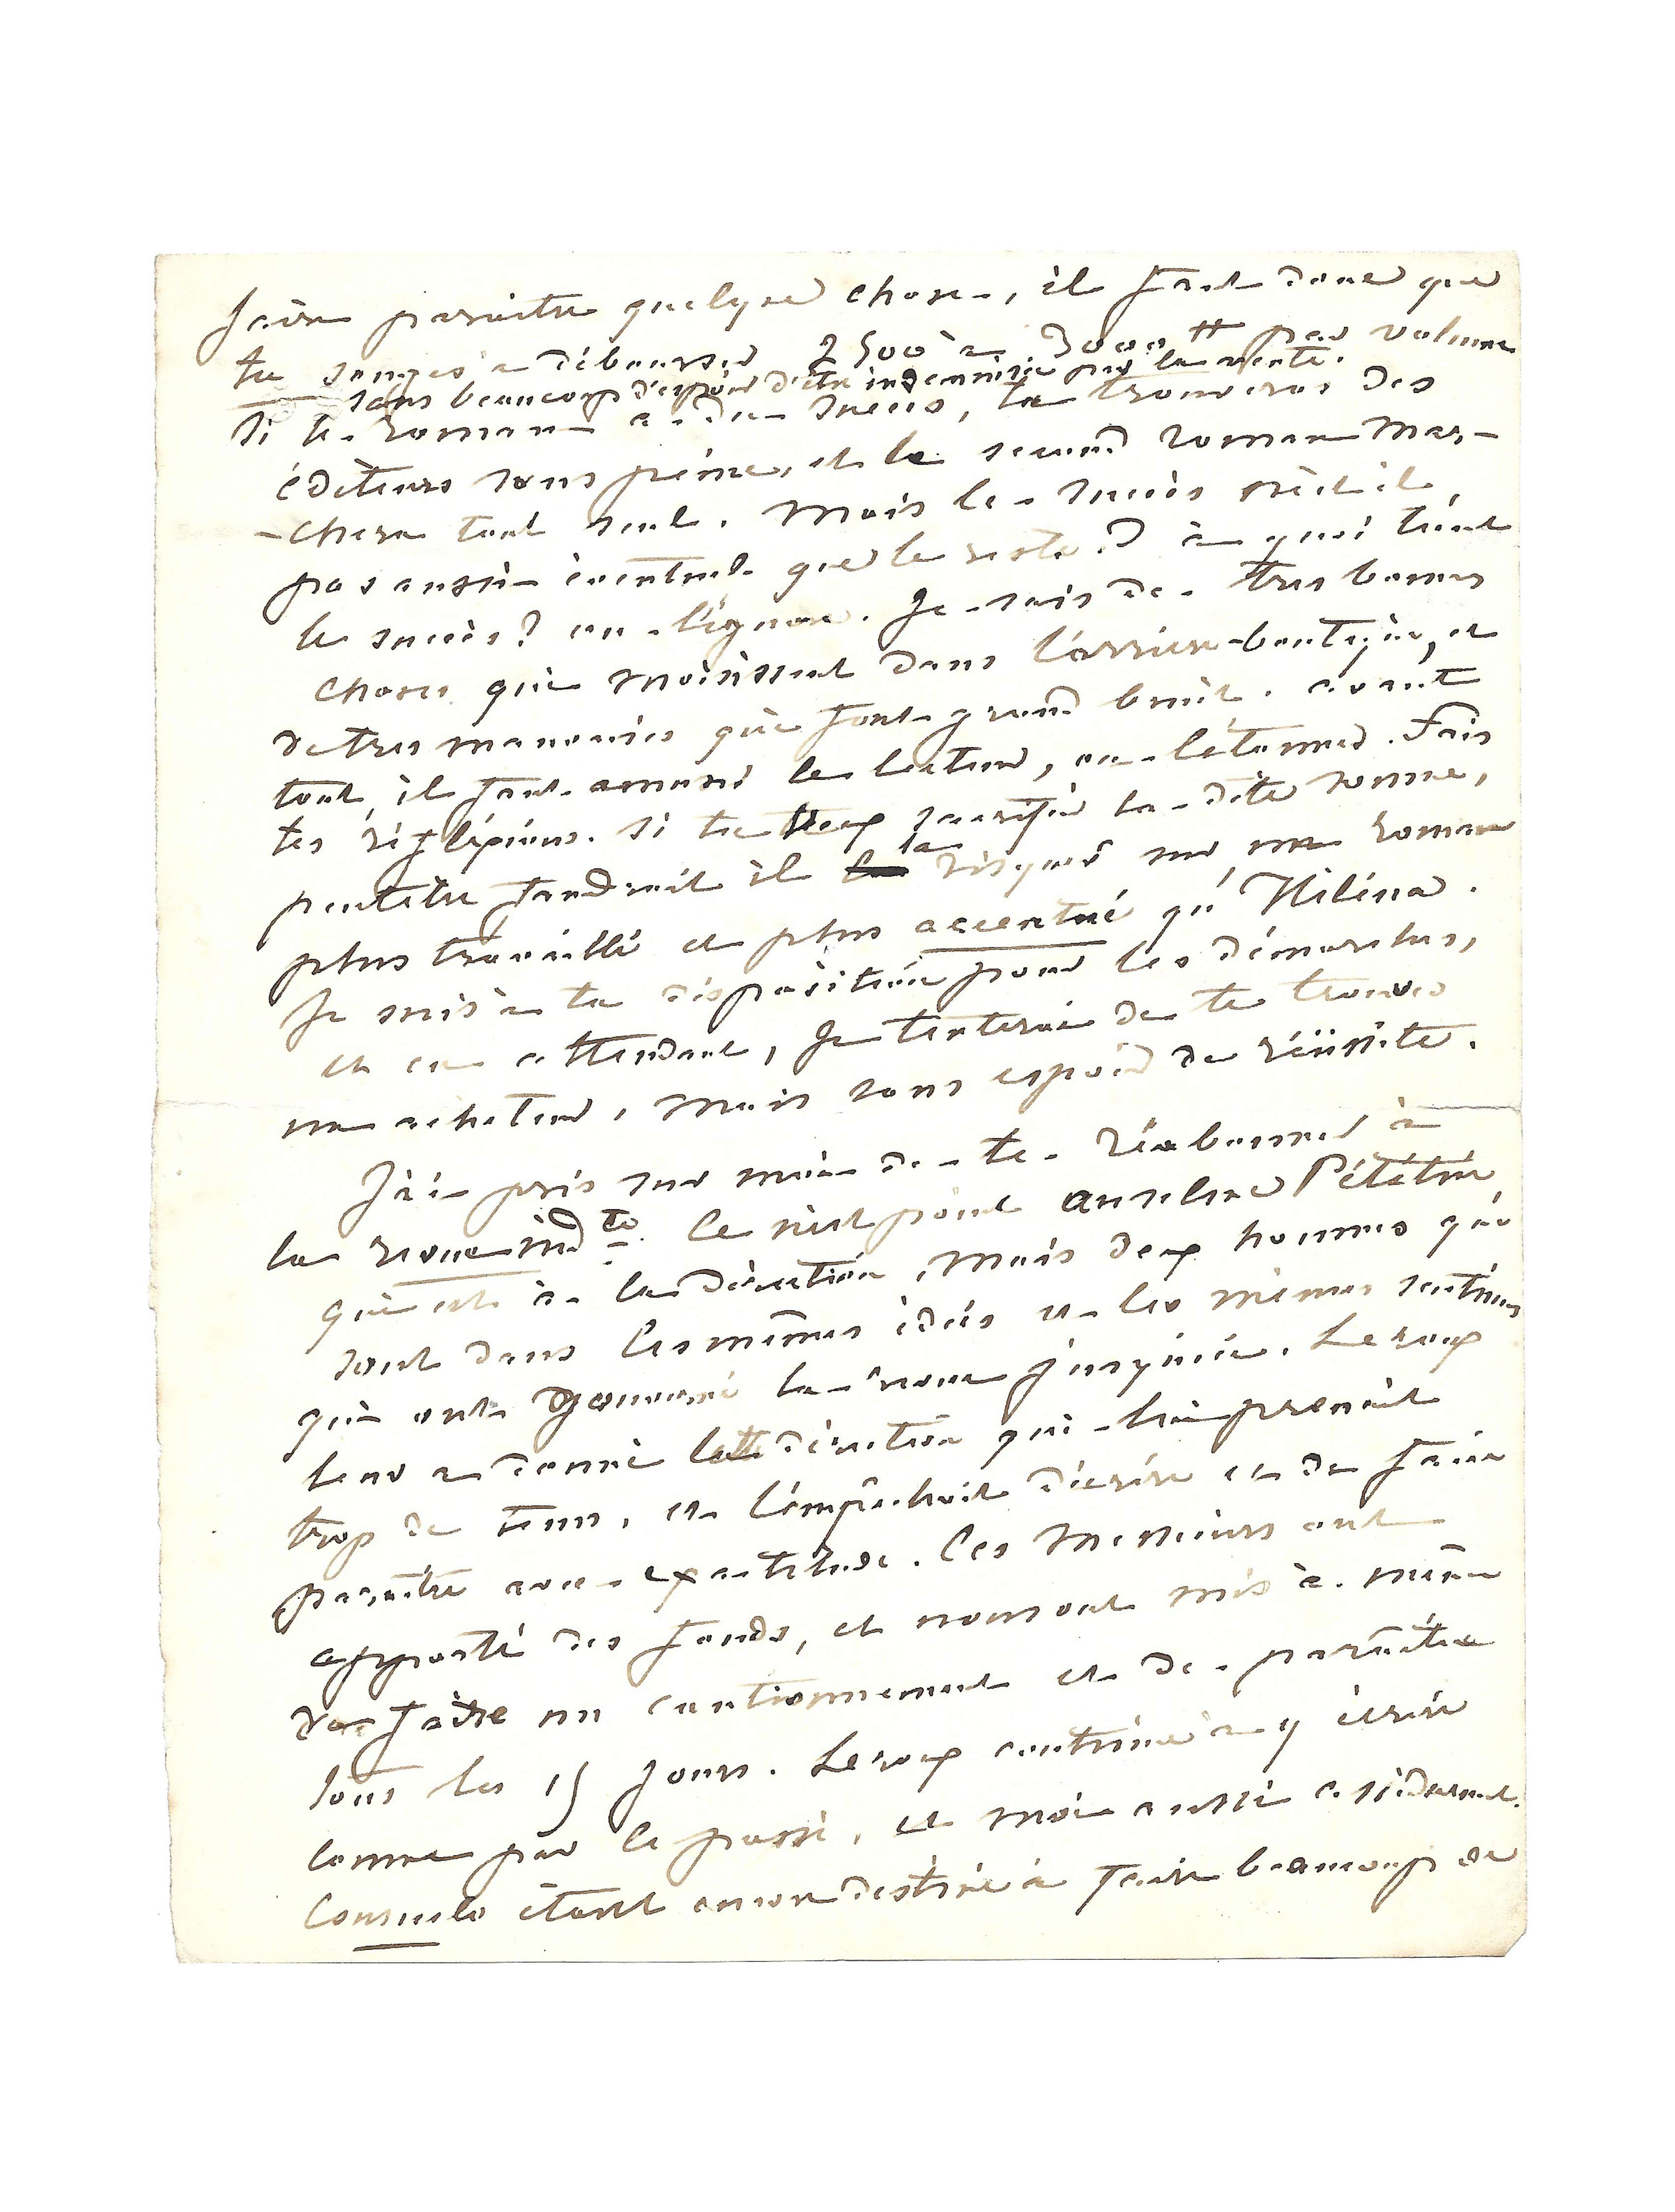 faire paraitre quelque chose, il faut donc que
tu songes à débourser 2500 à 3000 ₶ par volume
sans beaucoup d'espoir d'etre indemnisée par la vente.
Si le roman a du succès, tu trouveras des
éditeurs sans peine, et le second roman mar-
-chera tout seul. Mais le succès n'est il
pas aussi éventuel que le reste? à quoi tient
le succès? on l'ignore. Je sais de très bonnes
choses qui moisissent dans l'arrière-boutique, et
de très mauvaises qui font grand bruit. avant
tout, il faut amuser le lecteur, ou l'étonner. Fais
tes réflexions. Si tu veux sacrifier la dite somme,
peutetre faudrait il la risquer sur un roman
plus travaillé et plus accentué qu'Hélèna.
Je suis à ta disposition pour les démarches,
et en attendant, je tenterai de te trouver
un acheteur, mais sans espoir de réussite.
J'ai pris sur moi de te réabonner à
la revue indte. Ce n'est point anselme Pététin,
qui est à la direction, mais deux hommes qui
sont dans les mêmes idées et les mêmes sentimens
qui ont gouverné la revue jusqu'ici. Leroux
leur a donné cette direction qui lui prenait
trop de tems, et l'empêchait d'écrire et de faire
paraitre avec exactitude. Ces Messieurs ont
apporté des fonds, et nous ont mis à même
de faire un cautionnement et de paraitre
tous les 15 jours. Leroux continue à y écrire
comme par le passé, et moi aussi assidument.
Consuelo étant encore destinée à faire beaucoup de